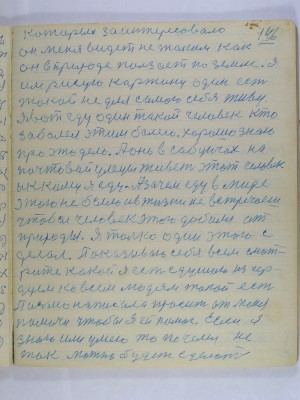 146
которых заинтересовало
он меня видет не таким как
он в природе ползает по земле. я
им рисую картину один есть
такой не для самого себя живу.
Я вот еду один такой человек кто
заболел этим болею. хорошо знаю
про это дело. А он в сабунчах на
почтовай улеци живет этот человек
и к нему я еду. А зачем еду в мире
этого не было и в жизни не встречаем
чтобы человек этого добился от
природы. Я только один этого с
делал. Показываю себя всем смот-
рите какой я есть с душою из сер-
дцем ко всем людям такой есть
Письмо написала просит от меня
помочи чтобы я ей помог. Если я
знаю или умею то почему не
так можно будет сделать